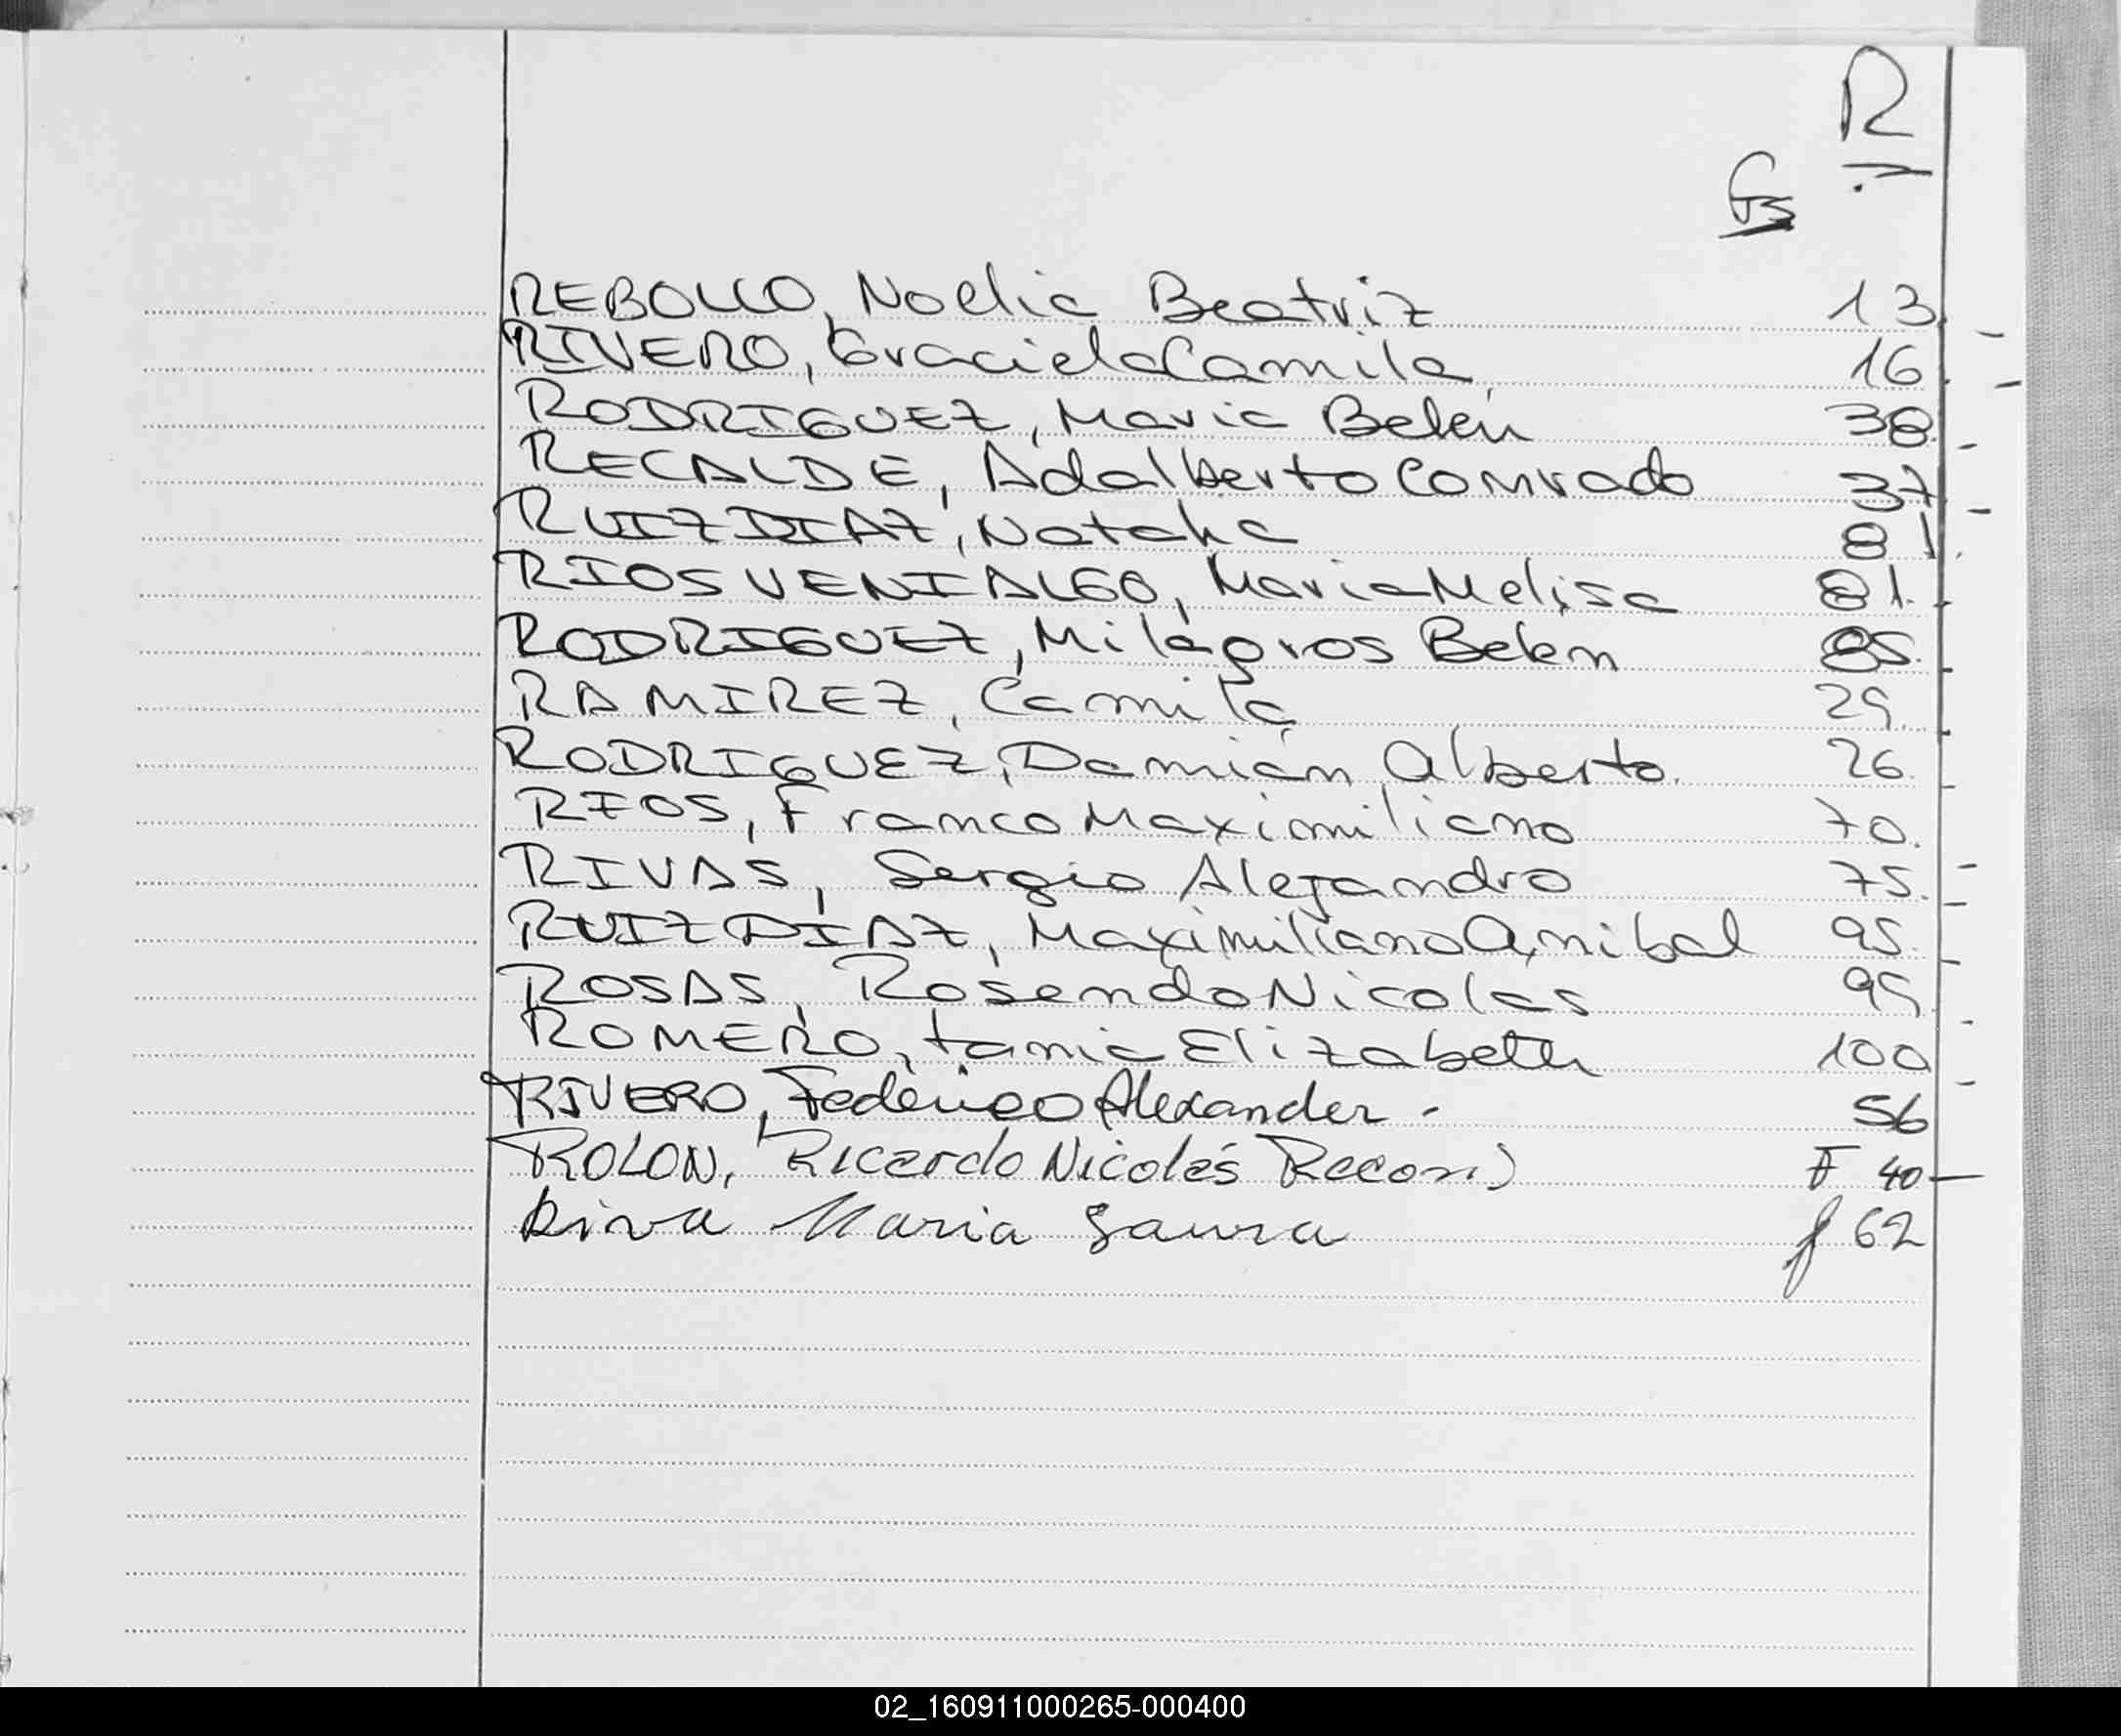 R
Fs
REBOLLO, Noelia Beatriz 13
RIVERO, Graciela Camila 16
RODRIGUEZ, Maria Belén 38
RECALDE, Adalberto Conrado 37
RUIZ DIAZ, Natalia 81
RIOS VENIALGO, Maria Melisa 81
RODRIGUEZ, Milagros Belen 85
RAMIREZ, Camila 29
RODRIGUEZ, Damián Alberto 26
RIOS, Franco Maximiliano 70
RIVAS, Sergio Alejandro 75
RUIZ DÍAZ, Maximiliano Anibal 95
ROSAS, Rosendo Nicolas 95
ROMERO, tania Elizabeth 100
RIVERO, Federico Alexander - 56
ROLON, Ricardo Nicolás Recon) F 40
Riva Maria Laura f 62
02_160911000265-000400